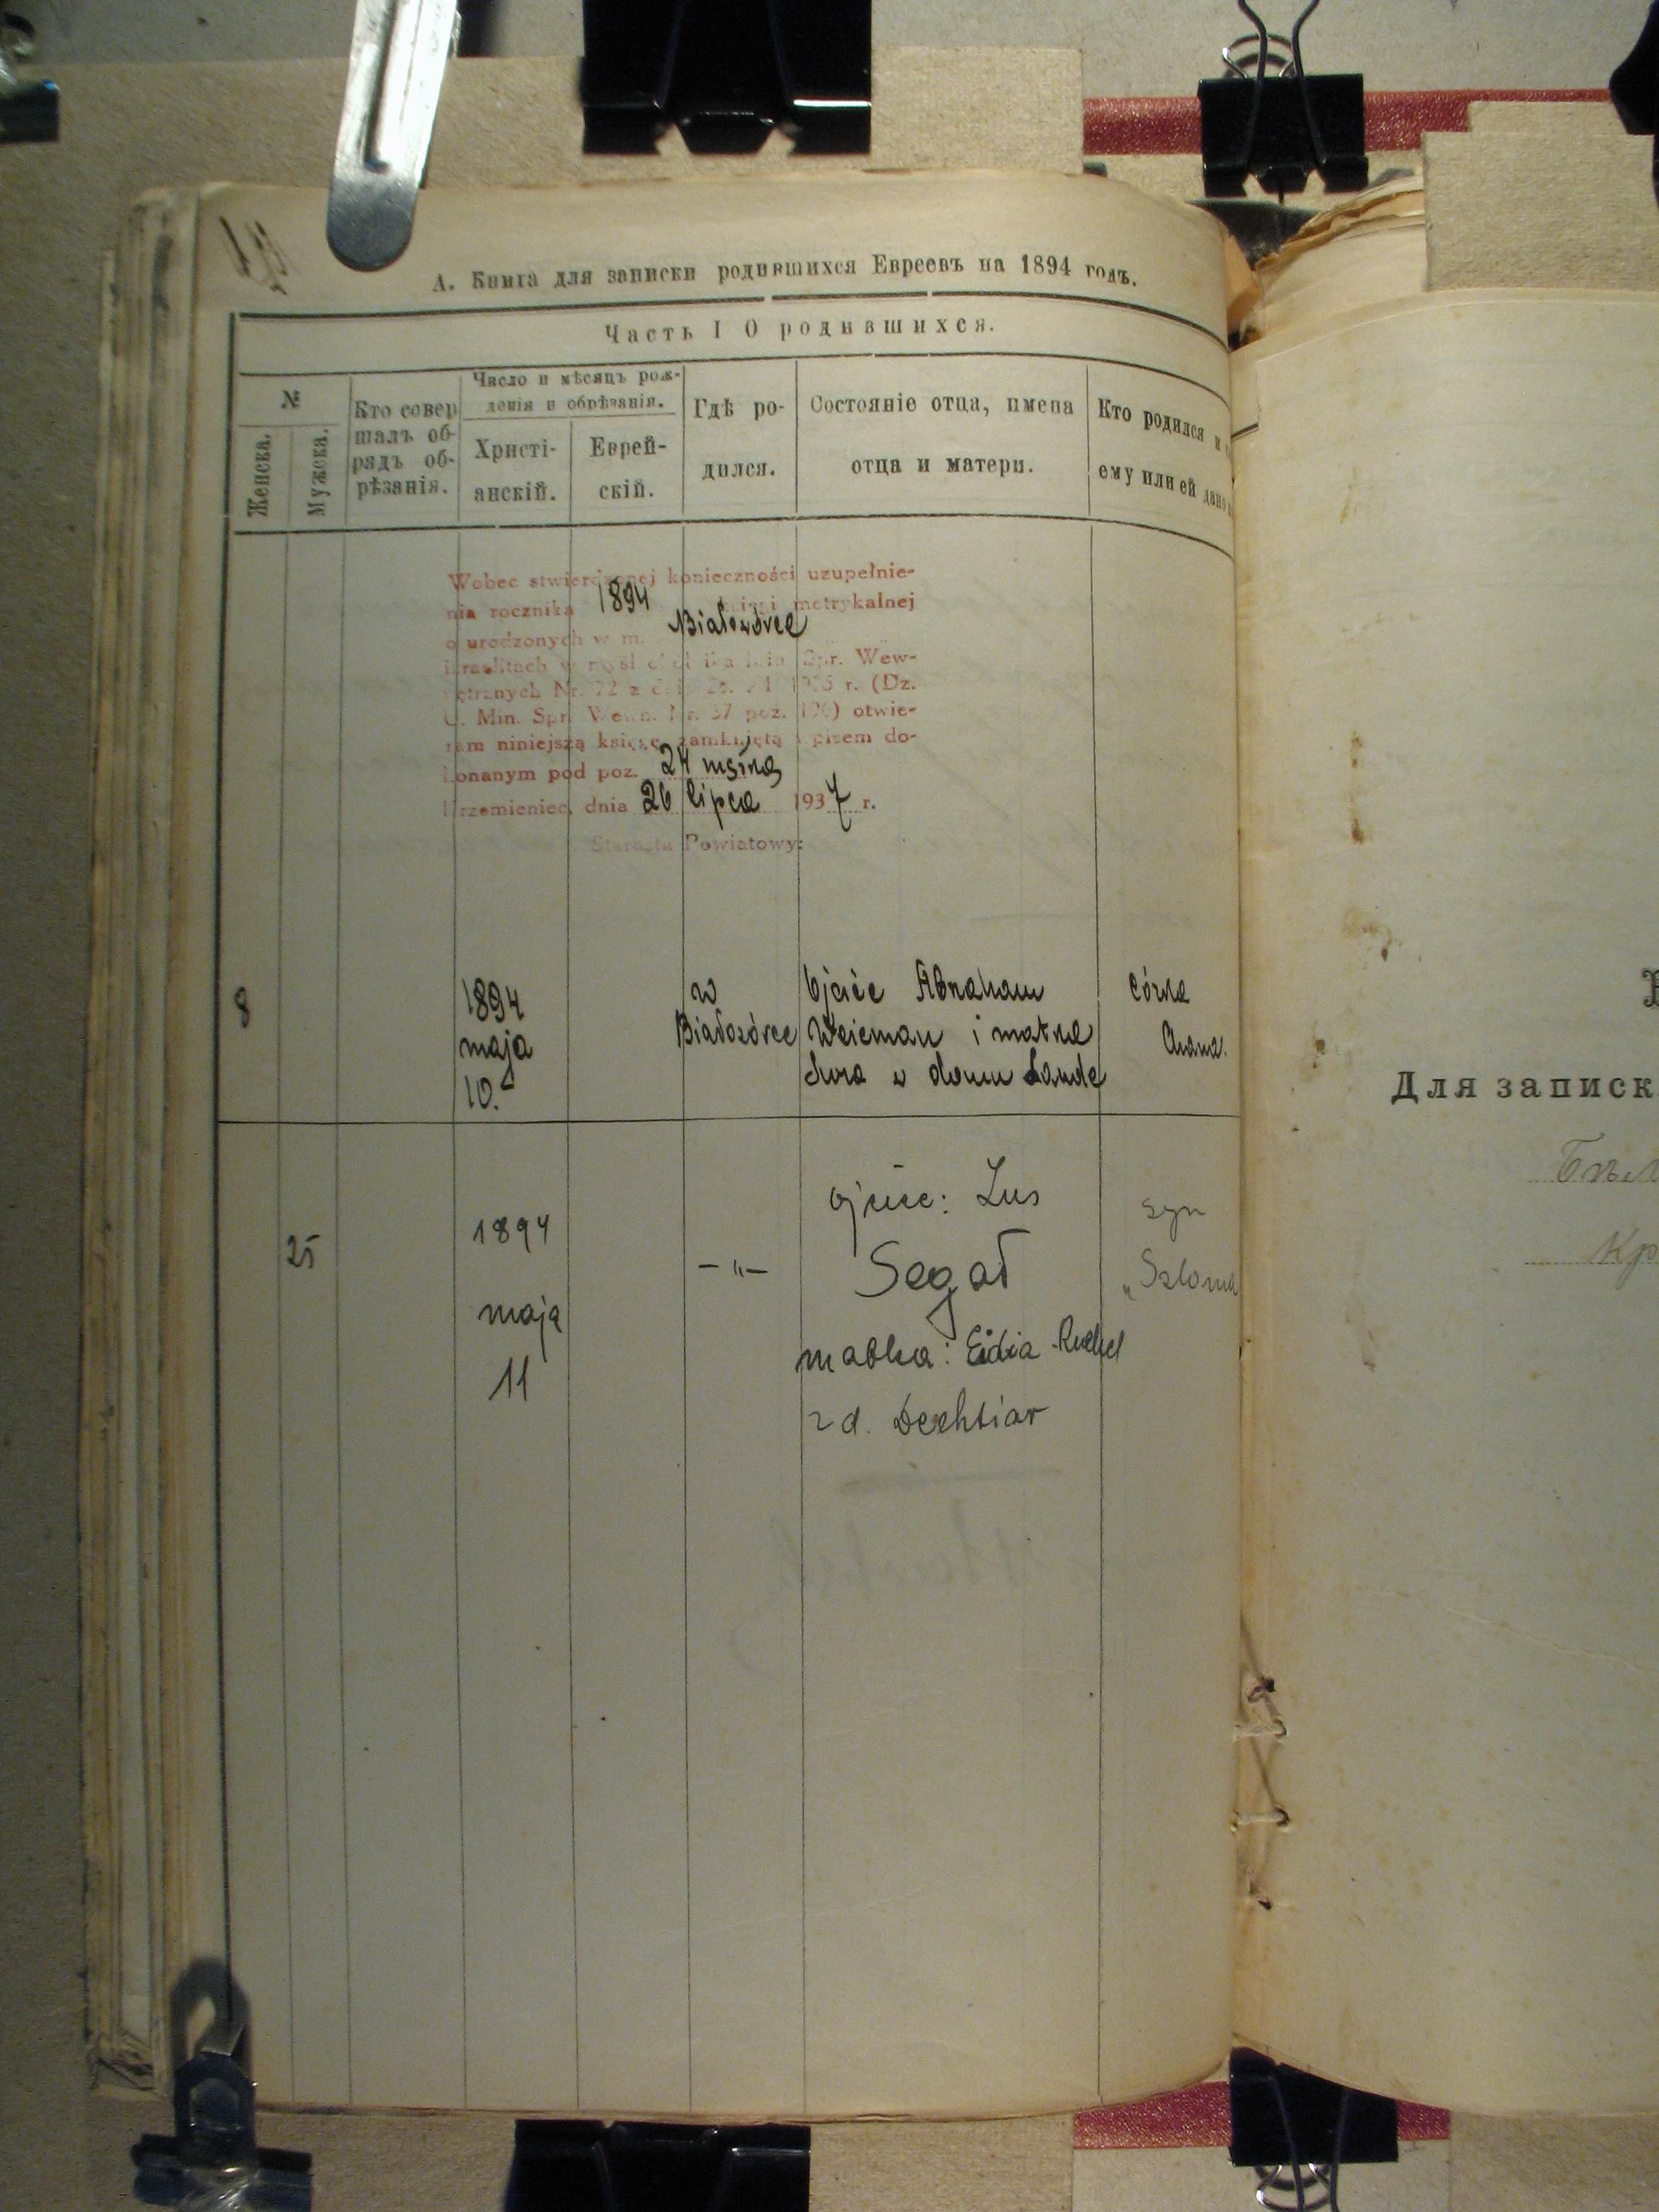 А. Книга для записки родившихся Евреевъ на 1894 годъ.
Часть I О родившихся.
№
Женска.
Мужска.
Кто совер
шалъ об-
рядъ об-
рѣзанія.
Число и мѣсяцъ рож-
денія и обрѣзанія.
Христі-
анскій.
Еврей-
скій.
Гдѣ ро-
дился.
Состояніе отца, имена
отца и матери.
Кто родился и
ему или ей дано
Wobec stwierdzonej konieczności uzupełnie-
nia rocznika 1894 księgi metrykalnej
o urodzonych w m. Białozórce
izraelitach w myśl Spr. Wew-
nętrznych Nr. 72 z r. (Dz.
U. Min. Spr. Wewn. Nr. 37 poz. otwie-
ram niniejszą księgę zamkniętą wpisem do-
konanym pod poz. 24 męską
Krzemieniec, dnia 26 lipca 1937 r.
Starosta Powiatowy:
8
1894
maja
10.
w
Białozórce
Ojciec Abraham
i matka
Sura z domu Lande
córka
25
1894
maja
11
- " -
ojciec: Zus
Segał
matka: Ruchel
z d. Dechtiar
syn
„Szloma
Для записк